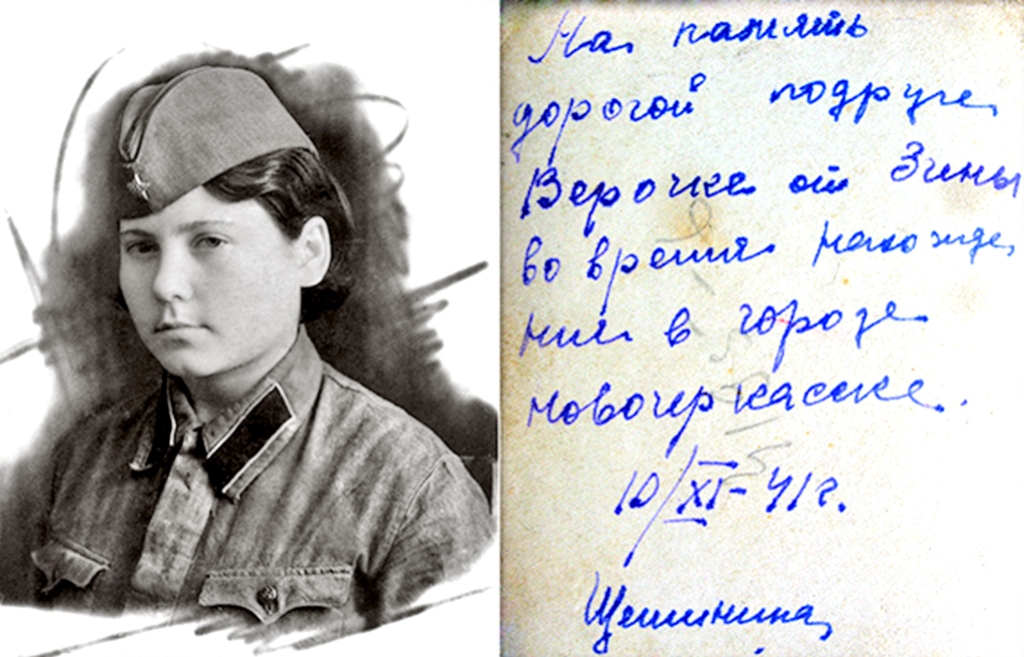 На память
дорогой подруге
Верочке от Зины
во время нахожде
ния в городе
новочеркасске.
10/XI-41г.